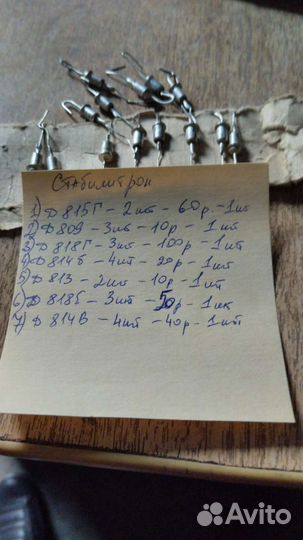 Стабилитрон
1) Д 815Г - 2шт - 60р. - 1шт
2) Д 809 - 3шт - 10р - 1шт
3) Д 818Г - 3шт - 100р - 1шт
4) Д 814Б - 4шт - 20р - 1шт
5) Д 813 - 2шт - 10р - 1шт
6) Д 818Б - 3шт - 50р - 1шт
7) Д 814В - 4шт - 40р - 1шт
Avito